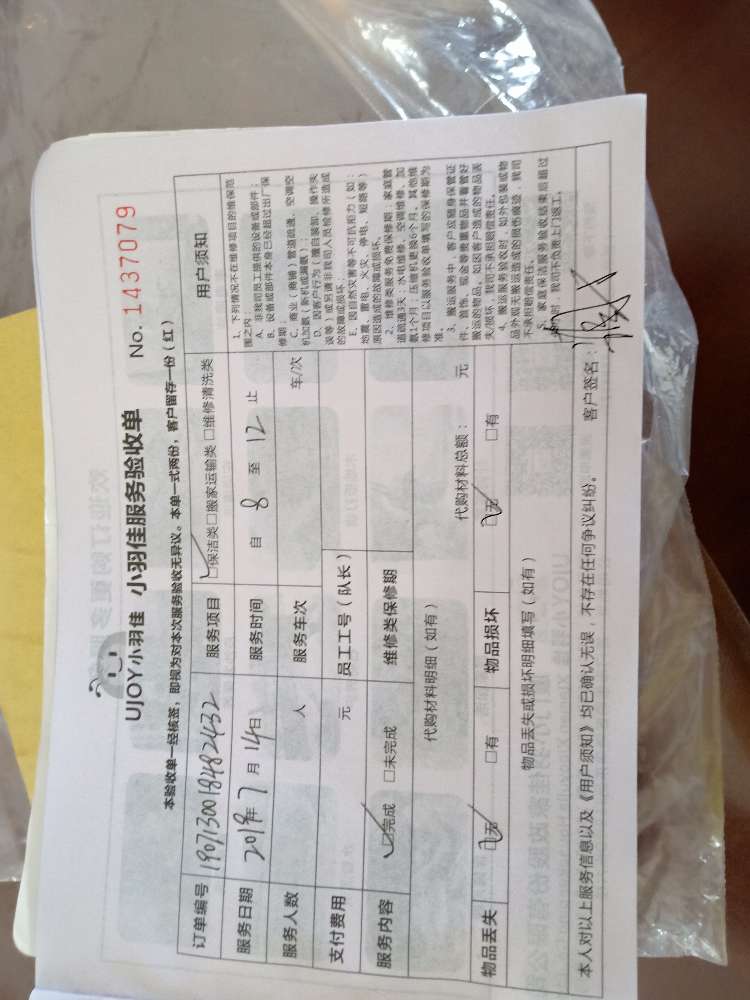 UJOY小羽佳 小羽佳服务验收单 No. 1437079
本验收单一经核签，即视为对本次服务验收无异议。本单一式两份，客户留存一份（红）
订单编号 1907130018482432 服务项目 □保洁类□搬家运输类 □维修清洗类 用户须知
服务日期 2019年 7 月 14日 服务时间 自 8 至 12 止
服务人数 人 服务车次 车/次
支付费用 元 员工工号（队长）
服务内容 □完成 □未完成 维修类保修期
代购材料明细（如有） 代购材料总额： 元
物品丢失 □无 □有 物品损坏 □无 □有
物品丢失或损坏明细填写（如有）
1、下列情况不在维修项目的维保范
围之内：
A、非我司员工提供的设备或部件；
B、设备或部件本身已经超过出厂保
修期；
C、商业（商铺）管道疏通、空调空
机加氨（新机或漏氨）；
D、因客户行为（擅自装卸、操作失
误等）或另请非我司人员检修所造成
的故障或损坏。
E、因自然灾害等不可抗拒力（如：
地震、雷电、火灾、停电、短路等）
原因造成的故障或损坏。
2、维修类服务免费保修期：家庭管
道疏通3天；水电维修、空调维修、加
氨1个月；压缩机更换6个月。其他维
修项目以服务验收单填写的保修期为
准。
3、搬运服务中，客户应随身保管证
件、首饰、现金等贵重物品并看管好
搬运的物品。如因客户造成的物品丢
失/损坏，我司不承担赔偿责任。
4、搬运服务验收时，如外包装或物
品外观无搬运造成的损伤痕迹，我司
不承担赔偿责任。
5、家庭保洁服务验收结束后超过
时，我司不负责上门返工。
本人对以上服务信息以及《用户须知》均已确认无误，不存在任何争议纠纷。 客户签名：